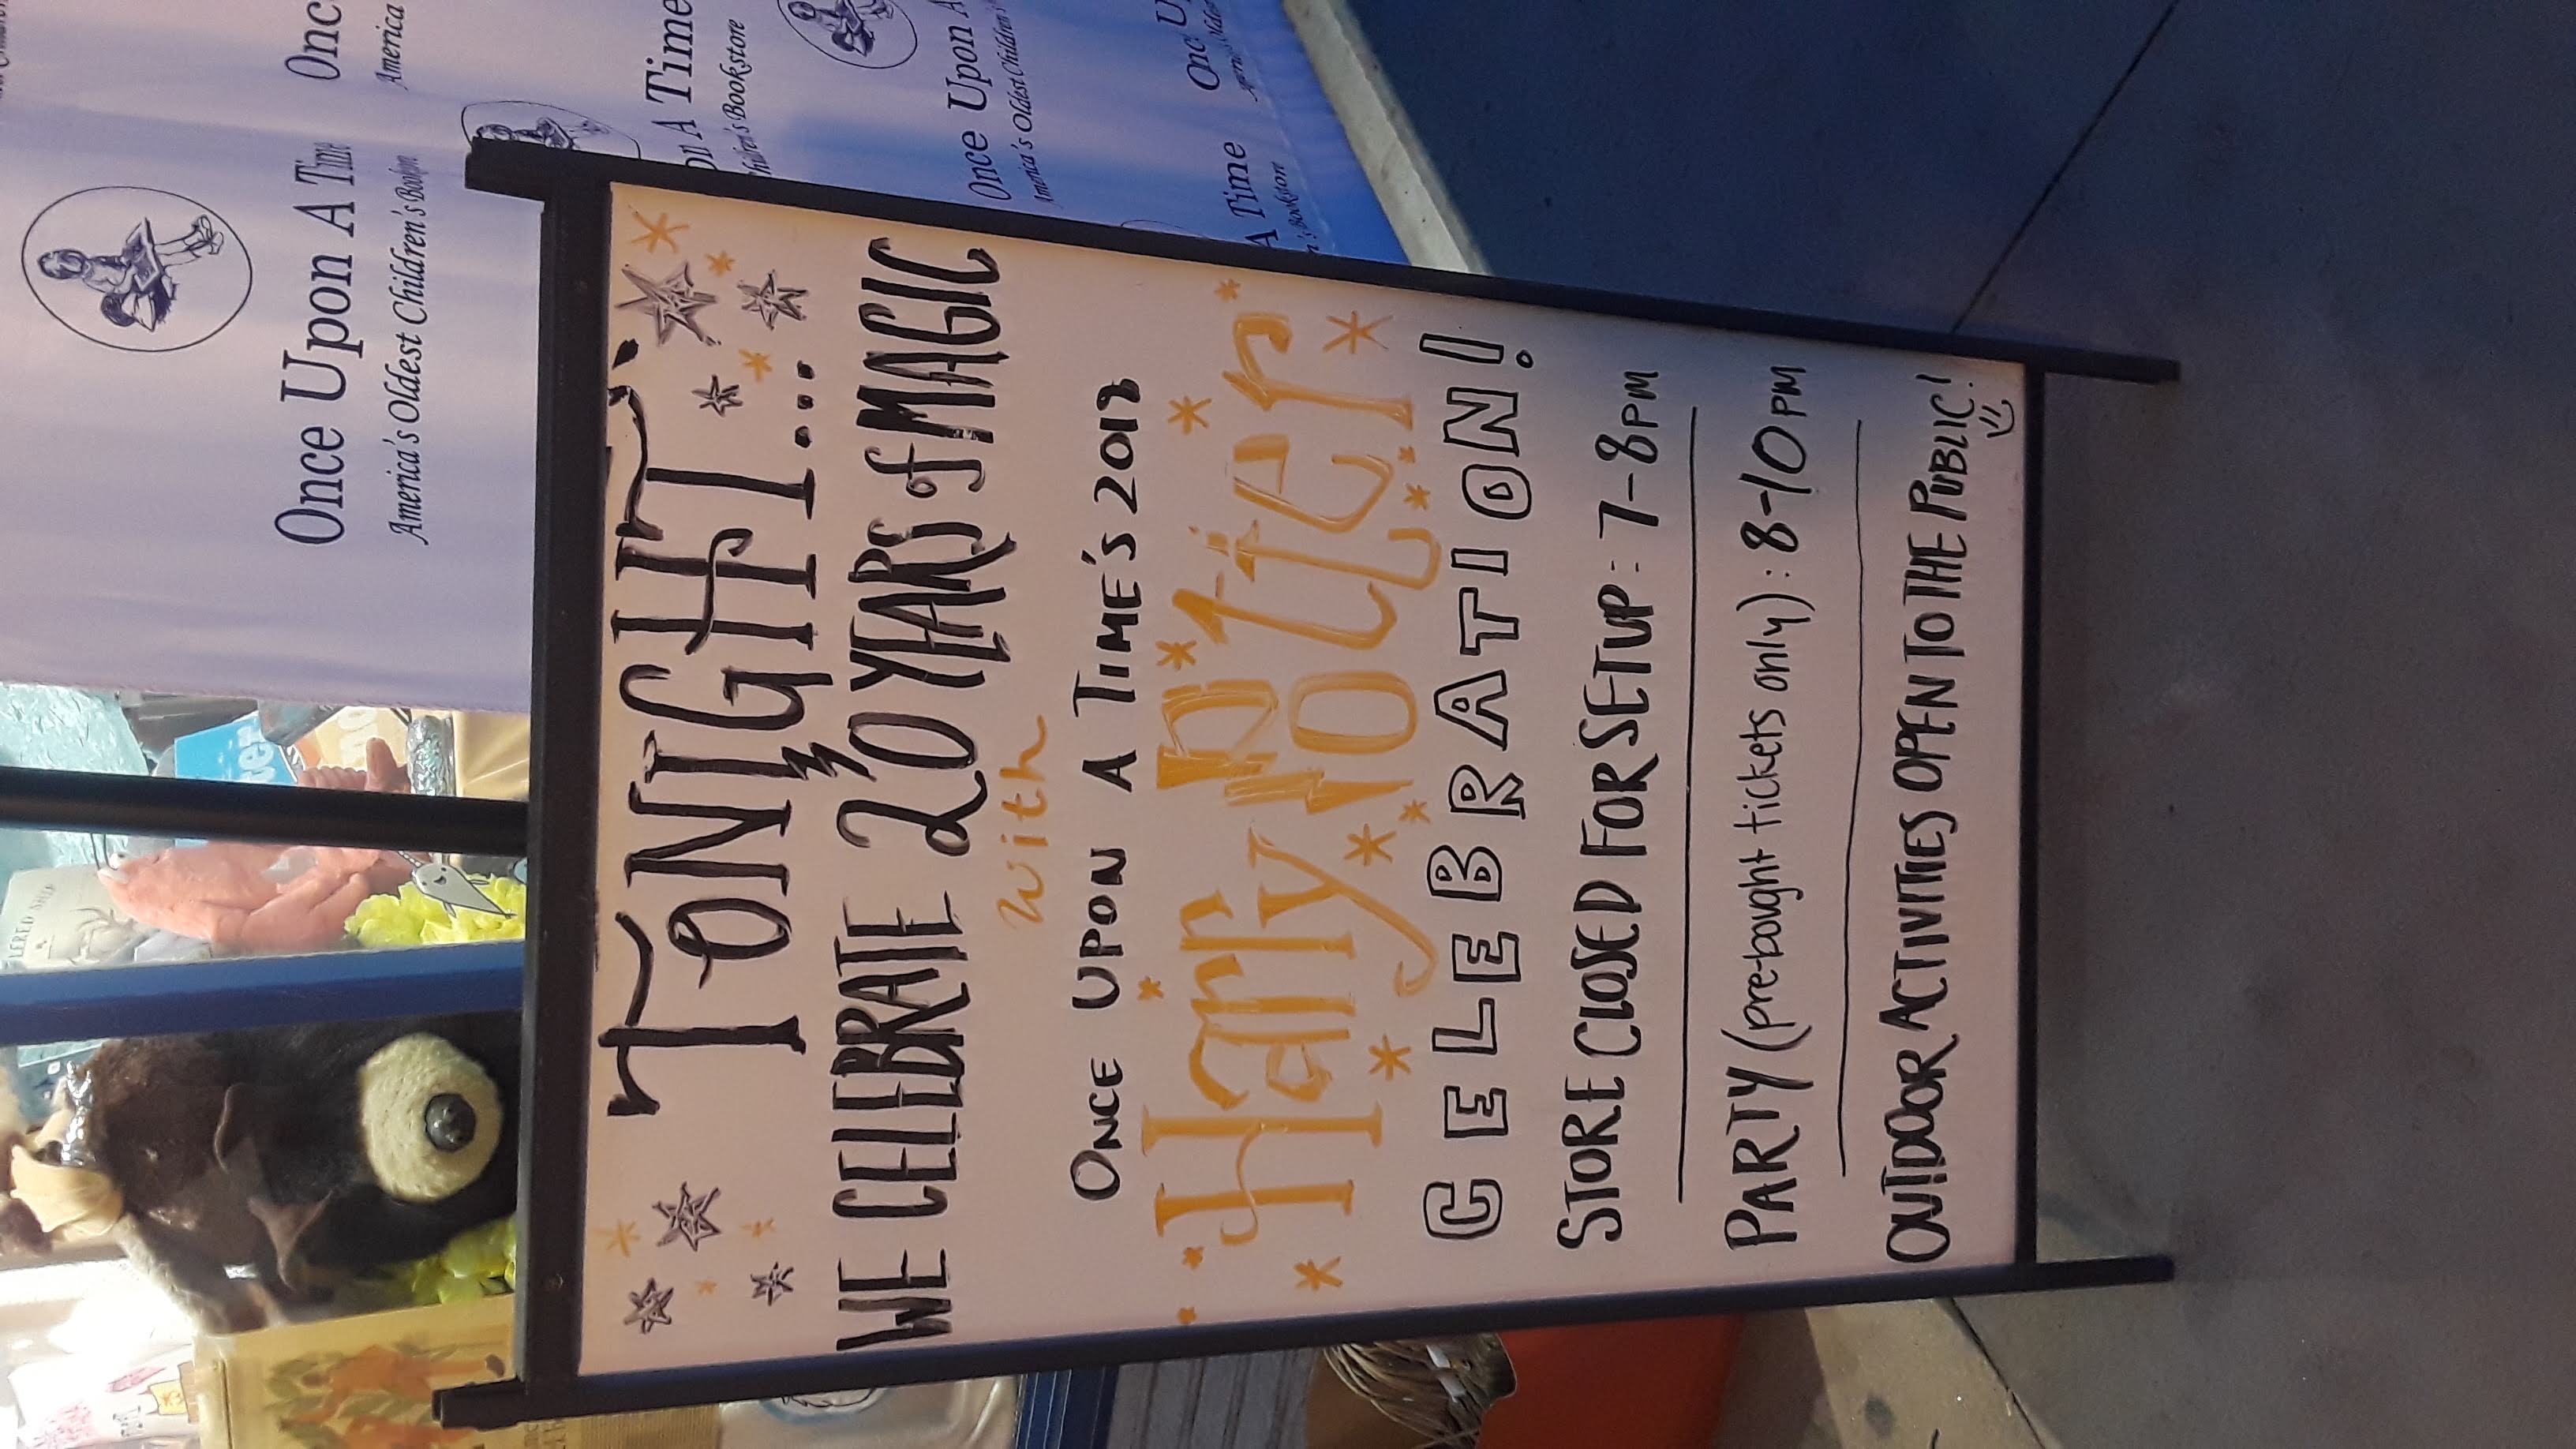 TONIGHT...
WE CELEBRATE 20 YEARS of MAGIC
with
ONCE UPON A TIME'S 2018
Harry Potter
CELEBRATION!
STORE CLOSED FOR SETUP: 7-8PM
PARTY (pre-bought tickets only): 8-10PM
OUTDOOR ACTIVITIES OPEN TO THE PUBLIC!
Once Upon A Time
America's Oldest Children's
Onc
America
A Time
Bookstore
Once Upon A
America's Oldest Children's
A Time
Bookston